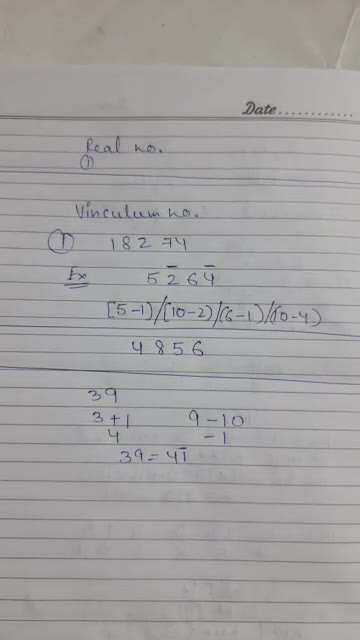 Date............
Real no.
①
Vinculum no.
① 182 74
Ex 5 2̅ 6 4̅
[5-1)/[10-2)/(6-1)/(10-4)
4 8 5 6
39
3+1 9-10
4 -1
39 = 41̅